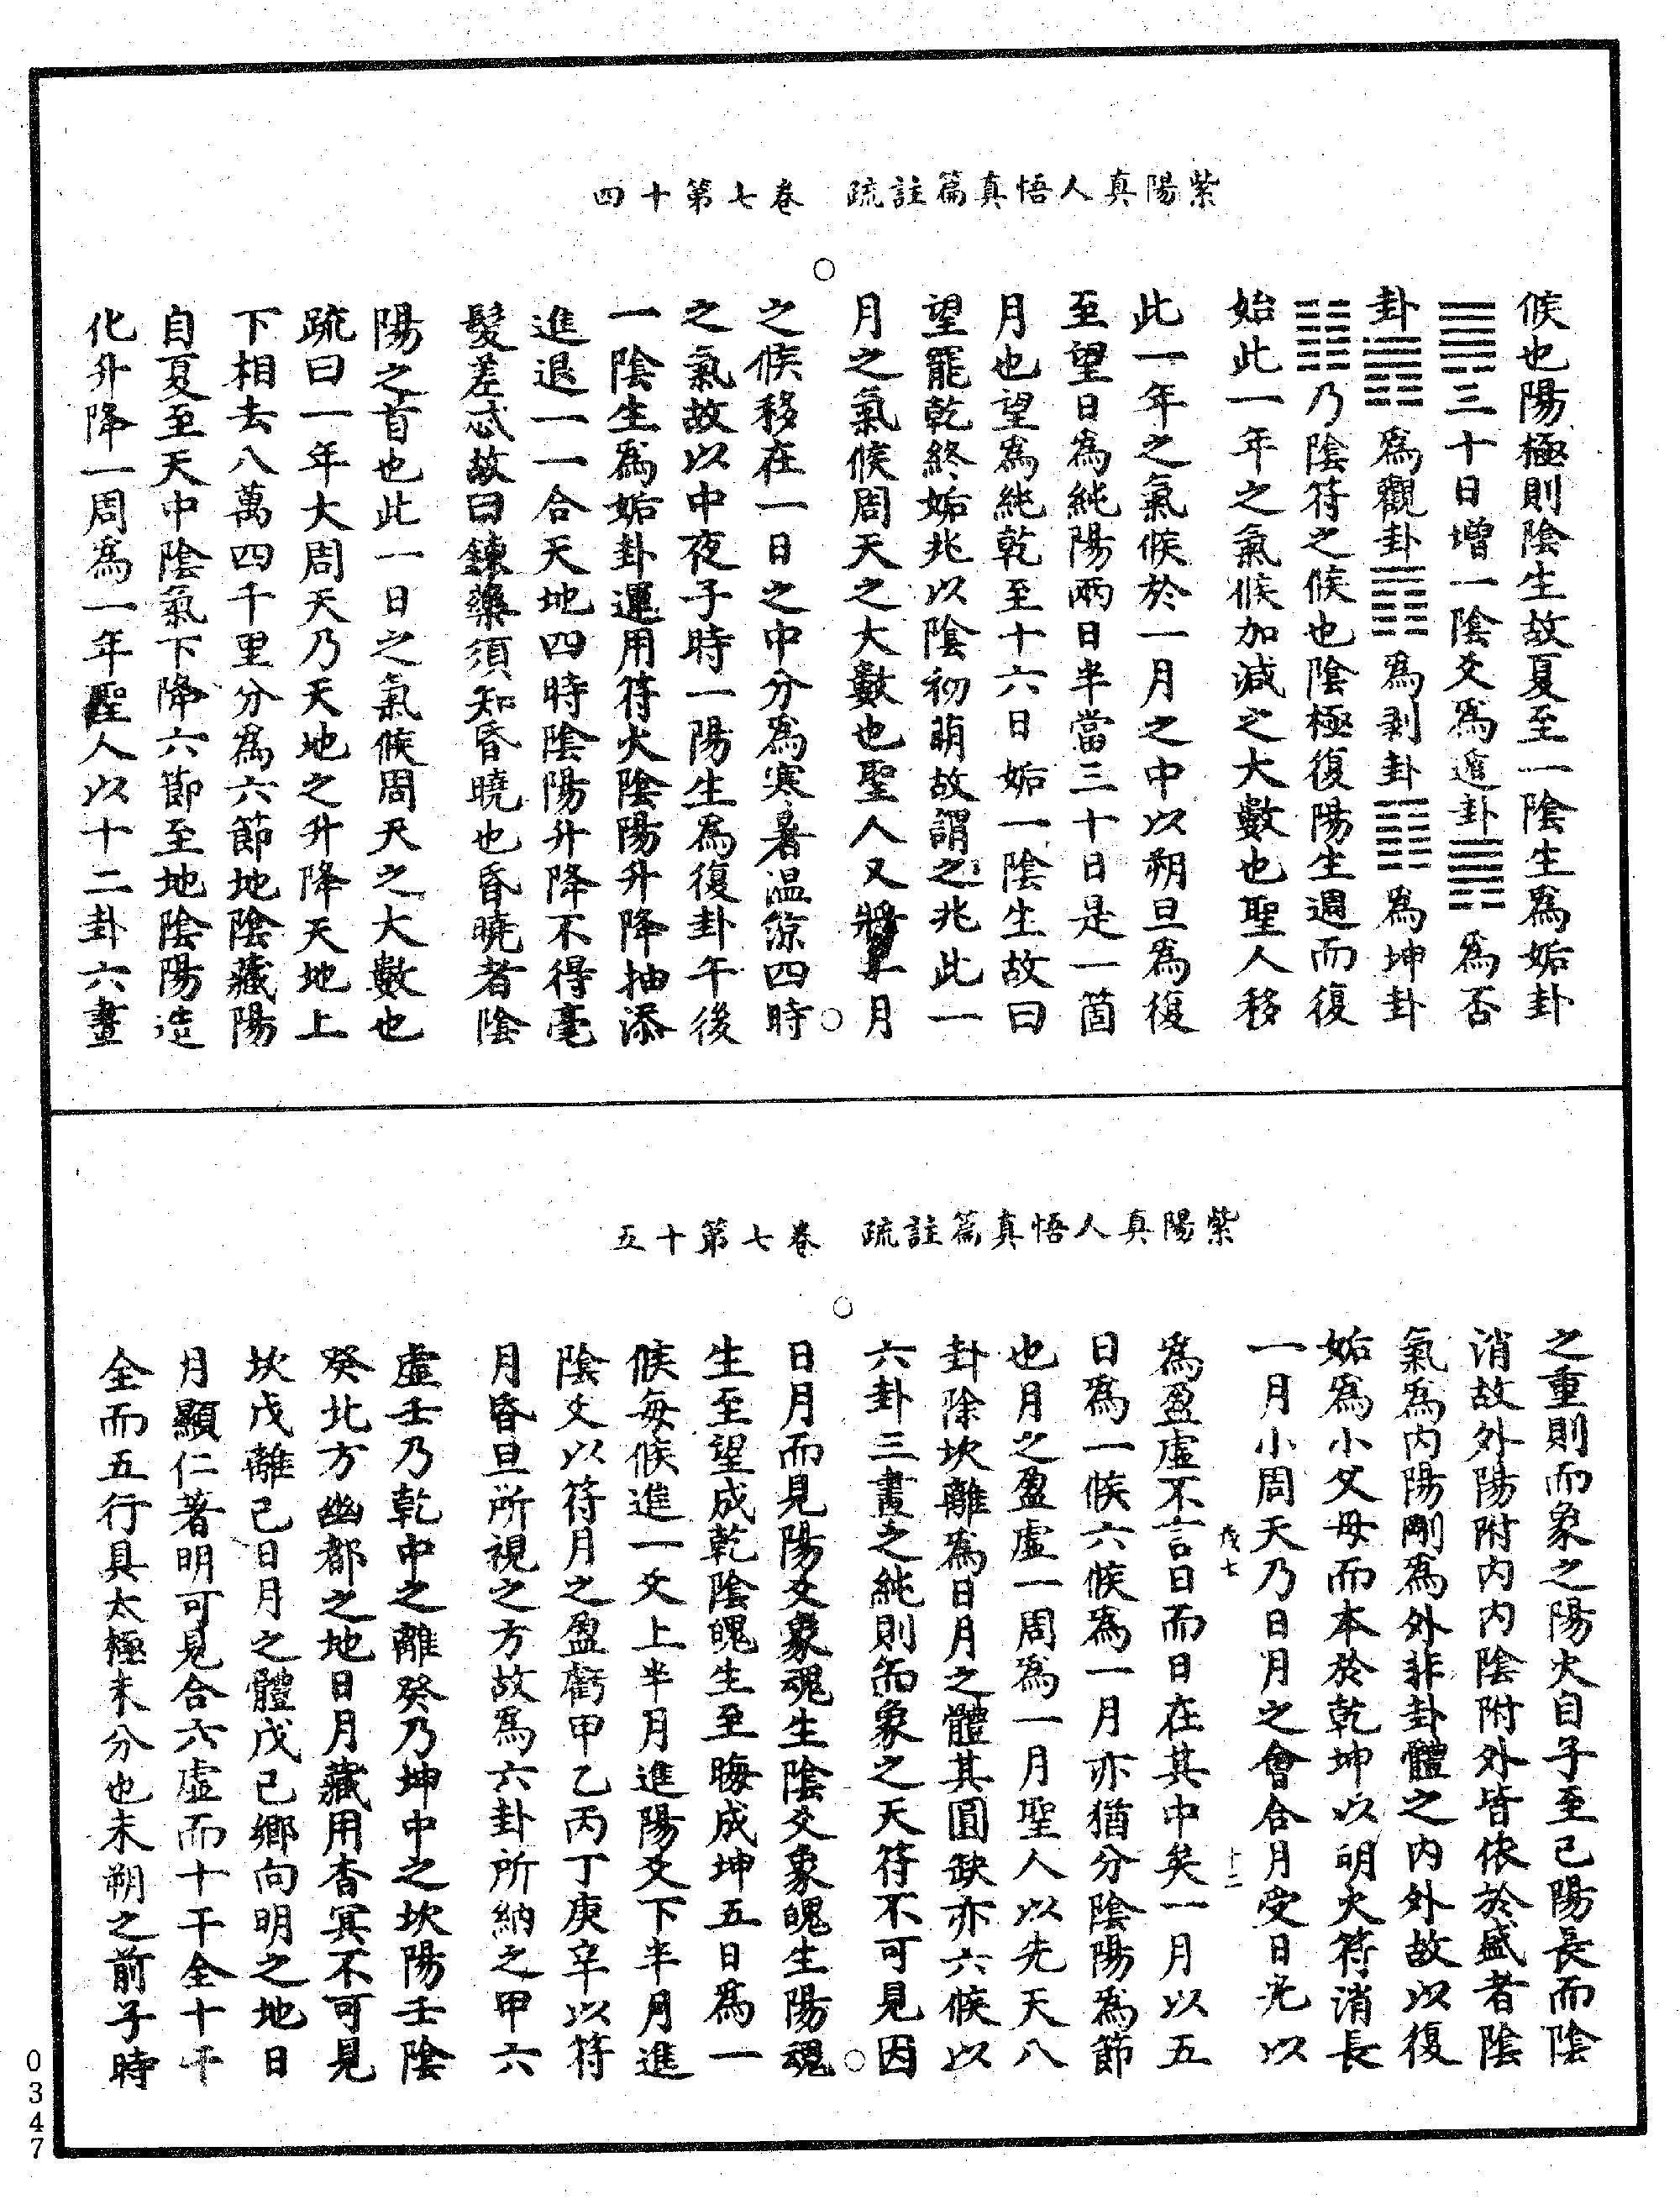 紫陽真人悟真篇註疏　卷七第十四
候也陽極則陰生故夏至一陰生爲姤卦
䷫三十日增一陰爻爲遁卦䷠爲否
卦䷋爲觀卦䷓爲剥卦䷖爲坤卦
䷁乃陰符之候也陰極復陽生週而復
始此一年之氣候加減之大數也聖人移
此一年之氣候於一月之中以朔旦爲復
至望日爲純陽兩日半當三十日是一箇
月也望爲純乾至十六日姤一陰生故曰
望罷乾終姤兆以陰初萌故謂之兆此一
月之氣候周天之大數也聖人又將一月
之候移在一日之中分爲寒暑温涼四時
之氣故以中夜子時一陽生爲復卦午後
一陰生爲姤卦運用符火陰陽升降抽添
進退一一合天地四時陰陽升降不得毫
髮差忒故曰鍊藥須知昏曉也昏曉者陰
陽之首也此一日之氣候周天之大數也
疏曰一年大周天乃天地之升降天地上
下相去八萬四千里分爲六節地陰藏陽
自夏至天中陰氣下降六節至地陰陽造
化升降一周爲一年聖人以十二卦六畫
紫陽真人悟真篇註疏　卷七第十五
之重則而象之陽火自子至巳陽長而陰
消故外陽附内内陰附外皆依於盛者陰
氣爲内陽剛爲外非卦體之内外故以復
姤爲小父母而本於乾坤以明火符消長
一月小周天乃日月之會合月受日光以
戊七　十二
爲盈虛不言日而日在其中矣一月以五
日爲一候六候爲一月亦猶分陰陽爲節
也月之盈虛一周爲一月聖人以先天八
卦除坎離爲日月之體其圓缺亦六候以
六卦三畫之純則而象之天符不可見因
日月而見陽爻象魂生陰爻象魄生陽魂
生至望成乾陰魄生至晦成坤五日爲一
候每候進一爻上半月進陽爻下半月進
陰爻以符月之盈虧甲乙丙丁庚辛以符
月昏旦所視之方故爲六卦所納之甲六
虛壬乃乾中之離癸乃坤中之坎陽壬陰
癸北方幽都之地日月藏用杳冥不可見
坎戊離己日月之體戊己鄉向明之地日
月顯仁著明可見合六虛而十干全十干
全而五行具太極未分也未朔之前子時
0347